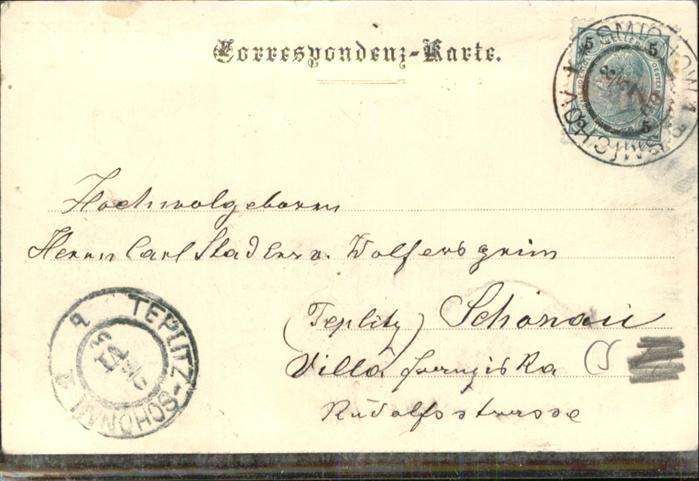 Correspondenz-Karte.
5 5
SMICHOW SMÍCHOV
5
Hochwolgeboren
Herrn Carl Stadler v. Wolfersgrün
(Teplitz) Schönau
Villa Franziska
Rudolfsstrasse
TEPLITZ-SCHÖNAU